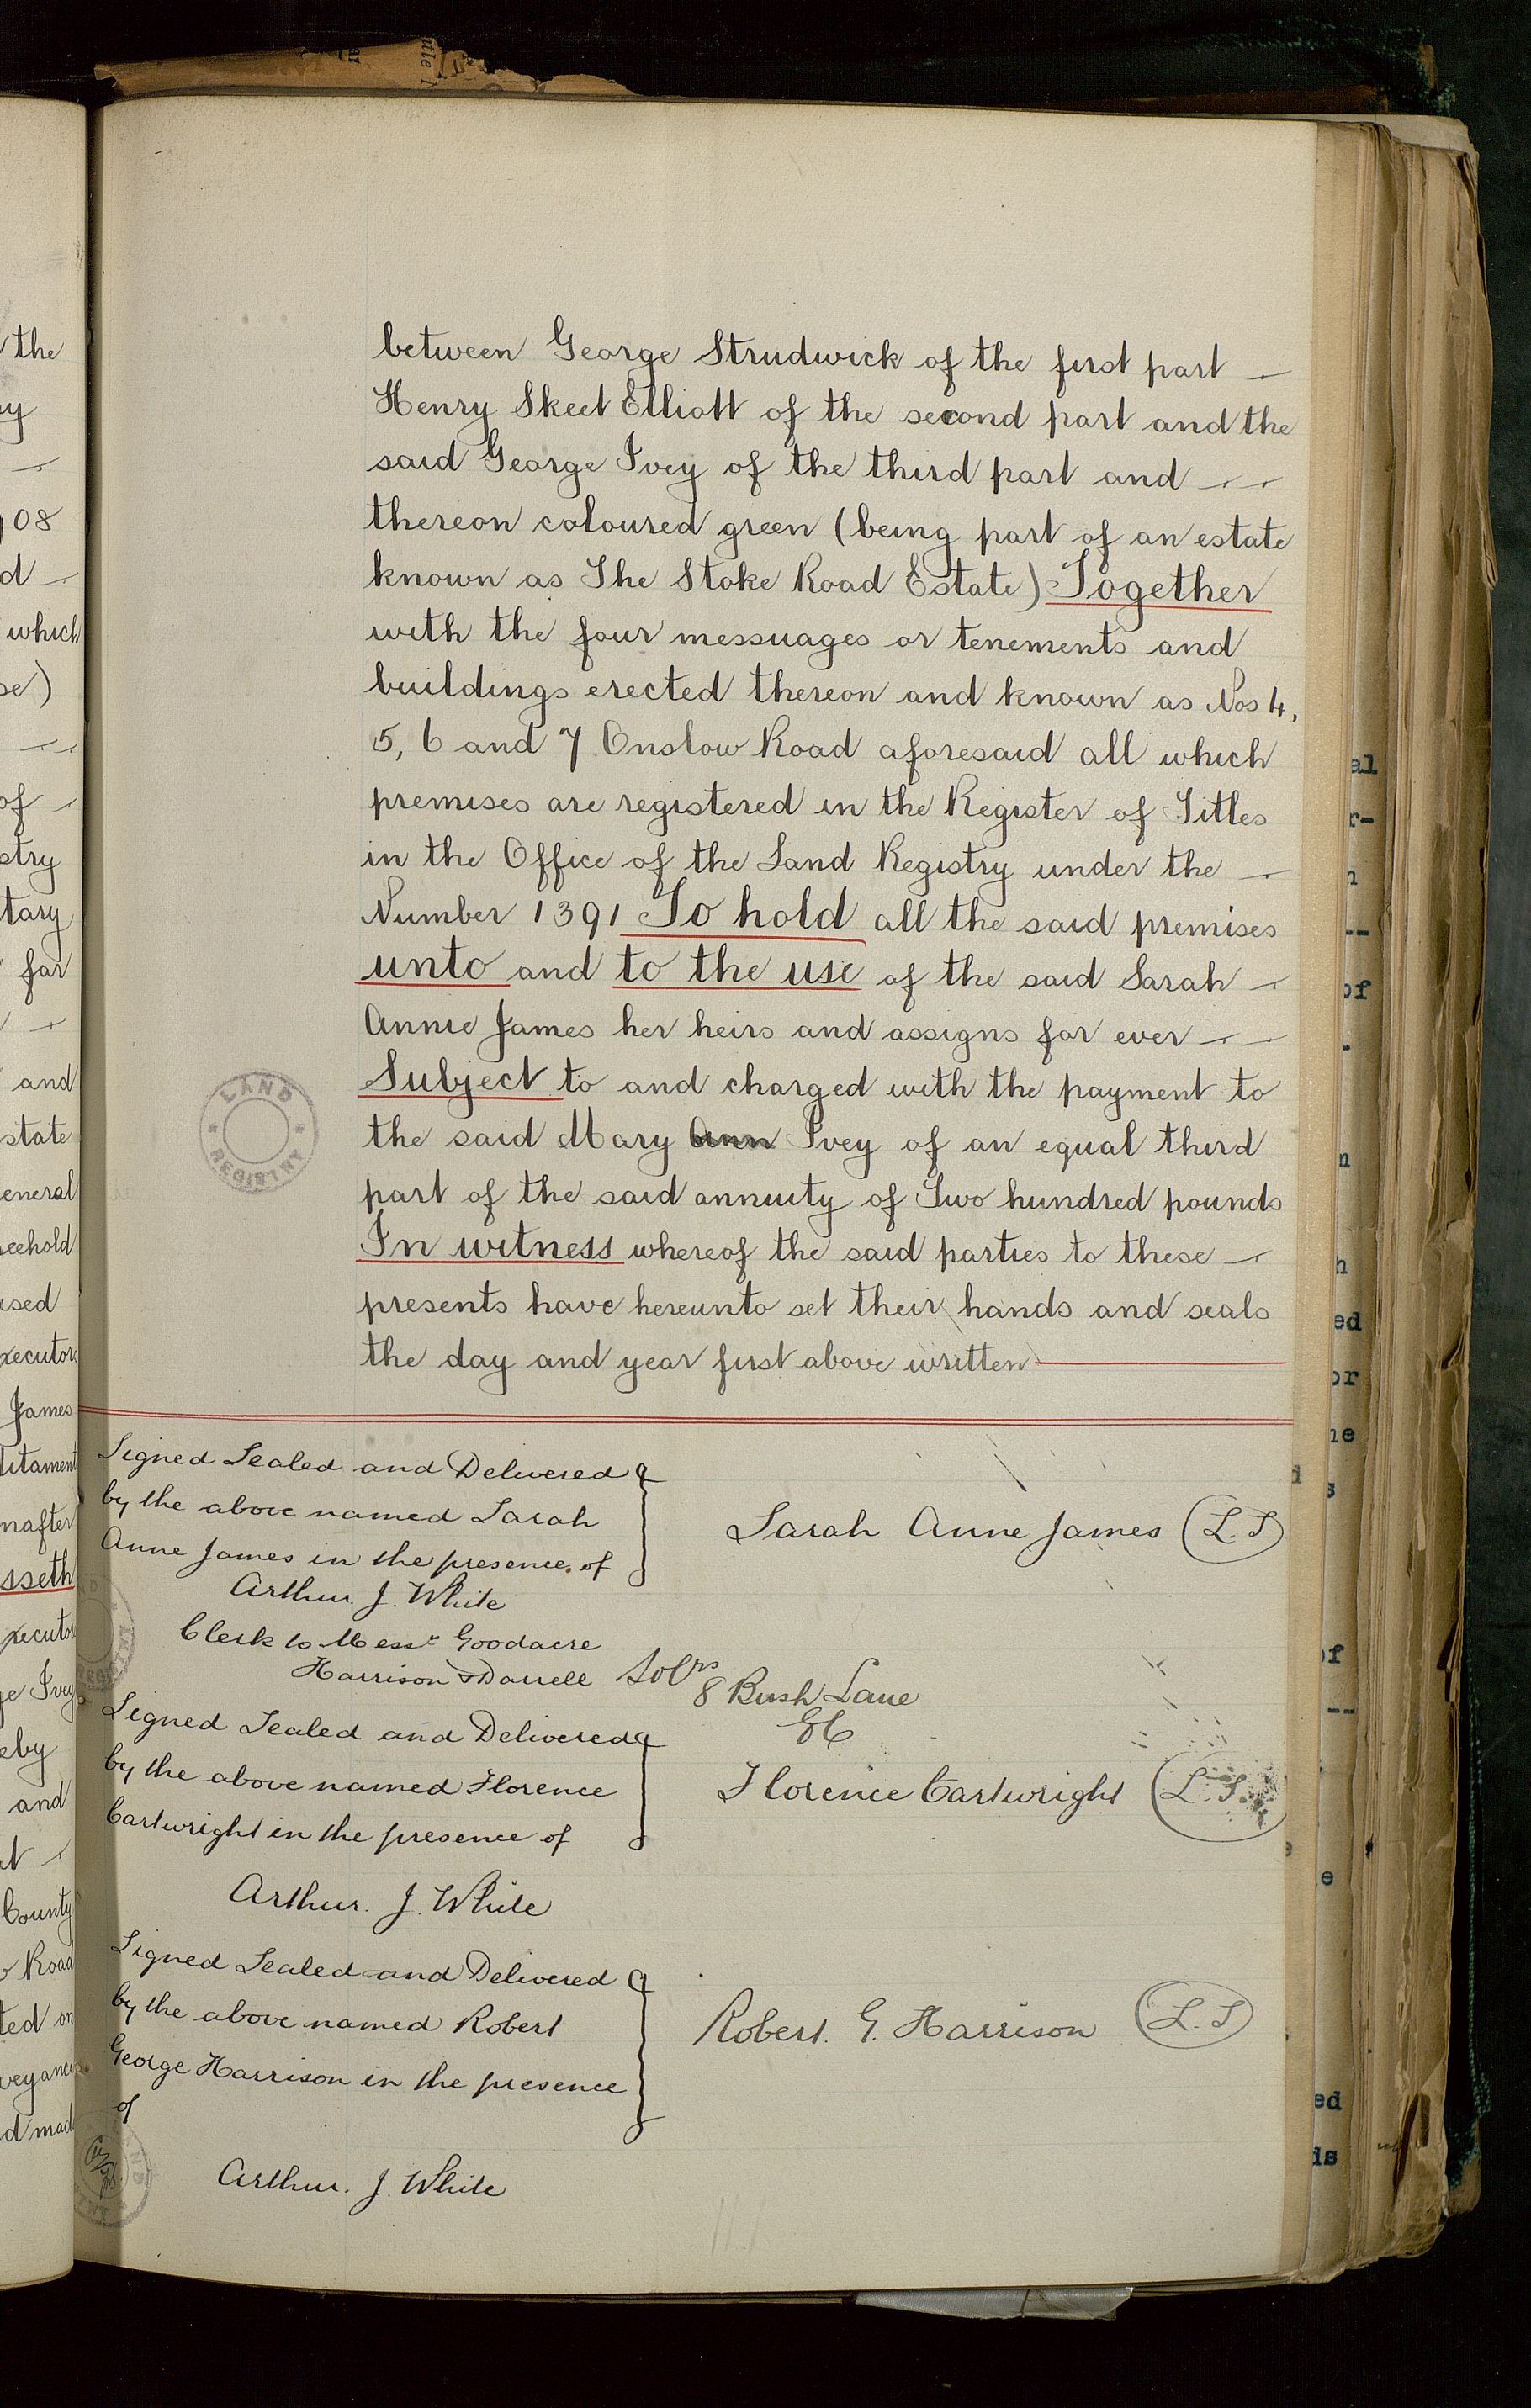 between George Strudwick of the first part
Henry Skeet Elliott of the second part and the
said George Ivey of the third part and
thereon coloured green (being part of an estate
known as The Stoke Road Estate) Together
with the four messuages or tenements and
buildings erected thereon and known as Nos 4,
5, 6 and 7 Onslow Road aforesaid all which
premises are registered in the Register of Titles
in the Office of the Land Registry under the
Number 1391 To hold all the said premises
unto and to the use of the said Sarah
Annie James her heirs and assigns for ever
Subject to and charged with the payment to
the said Mary Ann Ivey of an equal third
part of the said annuity of Two hundred pounds
In witness whereof the said parties to these
presents have hereunto set their hands and seals
the day and year first above written
LAND
REGISTRY
Signed Sealed and Delivered
by the above named Sarah
Anne James in the presence of
Sarah Anne James (L.S)
Arthur. J. White
Clerk to Messrs Goodacre
Harrison & Darrell Solrs
8 Bush Lane
EC
Signed Sealed and Delivered
by the above named Florence
Cartwright in the presence of
Florence Cartwright (L.S.)
Arthur. J. White
Signed Sealed and Delivered
by the above named Robert
George Harrison in the presence
of
Robert. G. Harrison (L.S)
Arthur. J. White
the
08
which
of
for
and
state
James
Ivey
and
County
Road
al
of
ed
or
of
ed